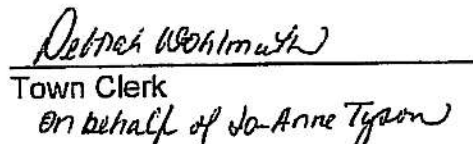 Debriah Wohlmuth
Town Clerk
on behalf of Jo-Anne Tyson